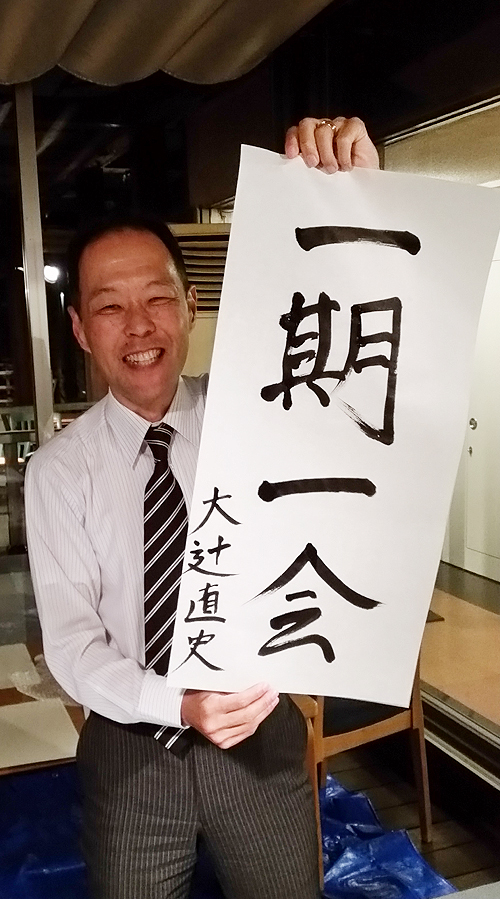 一期一会
大辻直史